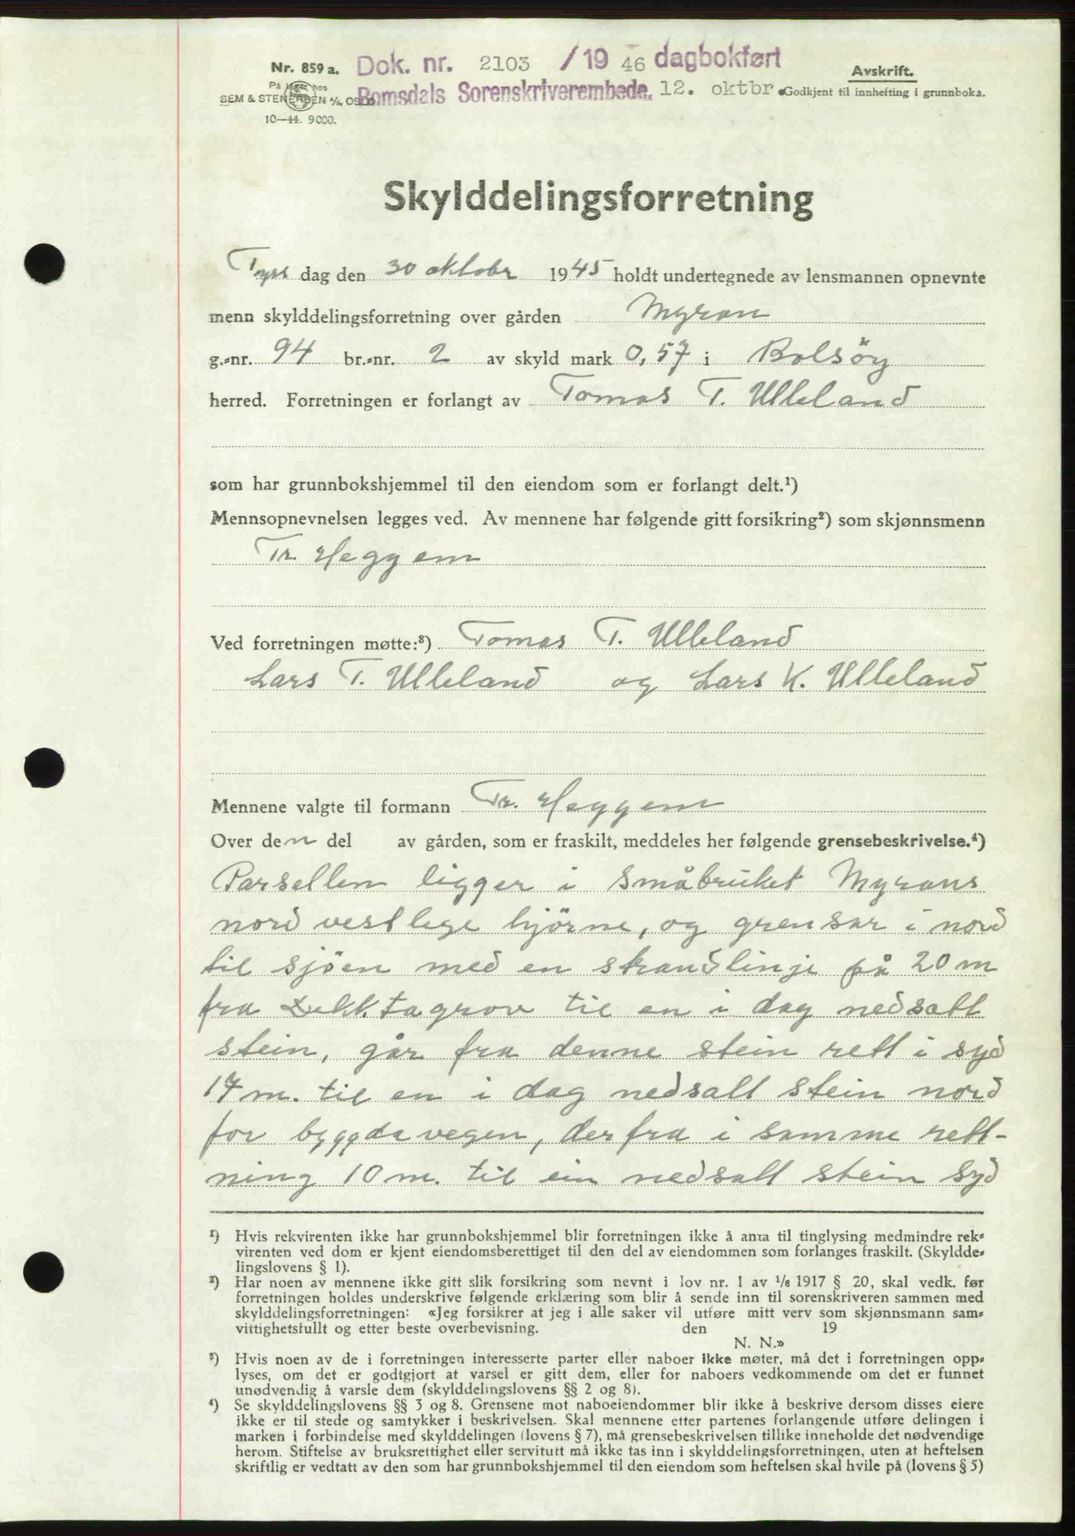 Nr. 859 a. Dok. nr. 2103 /19 46 dagbokført Avskrift.
På lager hos
SEM & STENERSEN A/S, OSLO Romsdals Sorenskriverembede, 12. oktbr. Godkjent til innhefting i grunnboka.
10—44. 9000.
Skylddelingsforretning
Tysdag den 30 oktobr 1945 holdt undertegnede av lensmannen opnevnte
menn skylddelingsforretning over gården Myran
g.-nr. 94 br.-nr. 2 av skyld mark 0,57 i Bolsöy
herred. Forretningen er forlangt av Tomas T. Ulleland
som har grunnbokshjemmel til den eiendom som er forlangt delt.¹)
Mennsopnevnelsen legges ved. Av mennene har følgende gitt forsikring²) som skjønnsmenn
Tr. Heggem
Ved forretningen møtte:³) Tomas T. Ulleland
Lars T. Ulleland og Lars K. Ulleland
Mennene valgte til formann Tr. Heggem
Over den del av gården, som er fraskilt, meddeles her følgende grensebeskrivelse.⁴)
Parsellen ligger i småbruket Myrans
nordvestlege hjörne, og grensar i nord
til sjöen med en strandlinje på 20 m
fra grov til en i dag nedsatt
stein, går fra denne stein rett i syd
17 m. til en i dag nedsatt stein nord
for byggdevegen, derfra i samme rett-
ning 10 m. til ein nedsatt stein syd
¹) Hvis rekvirenten ikke har grunnbokshjemmel blir forretningen ikke å anta til tinglysing medmindre rek-
virenten ved dom er kjent eiendomsberettiget til den del av eiendommen som forlanges fraskilt. (Skyldde-
lingslovens § 1).
²) Har noen av mennene ikke gitt slik forsikring som nevnt i lov nr. 1 av 1/6 1917 § 20, skal vedk. før
forretningen holdes underskrive følgende erklæring som blir å sende inn til sorenskriveren sammen med
skylddelingsforretningen: «Jeg forsikrer at jeg i alle saker vil utføre mitt verv som skjønnsmann sam-
vittighetsfullt og etter beste overbevisning. den 19
N. N.»
³) Hvis noen av de i forretningen interesserte parter eller naboer ikke møter, må det i forretningen opp-
lyses, om det er godtgjort at varsel er gitt dem, eller for naboers vedkommende om det er funnet
unødvendig å varsle dem (skylddelingslovens §§ 2 og 8).
⁴) Se skylddelingslovens §§ 3 og 8. Grensene mot naboeiendommer blir ikke å beskrive dersom disses eiere
ikke er til stede og samtykker i beskrivelsen. Skal mennene etter partenes forlangende utføre delingen i
marken i forbindelse med skylddelingen (lovens § 7), må grensebeskrivelsen tillike inneholde det nødvendige
herom. Stiftelse av bruksrettighet eller servitutt må ikke tas inn i skylddelingsforretningen, uten at heftelsen
skriftlig er vedtatt av den som har grunnbokshjemmel til den eiendom som heftelsen skal hvile på (lovens § 5)